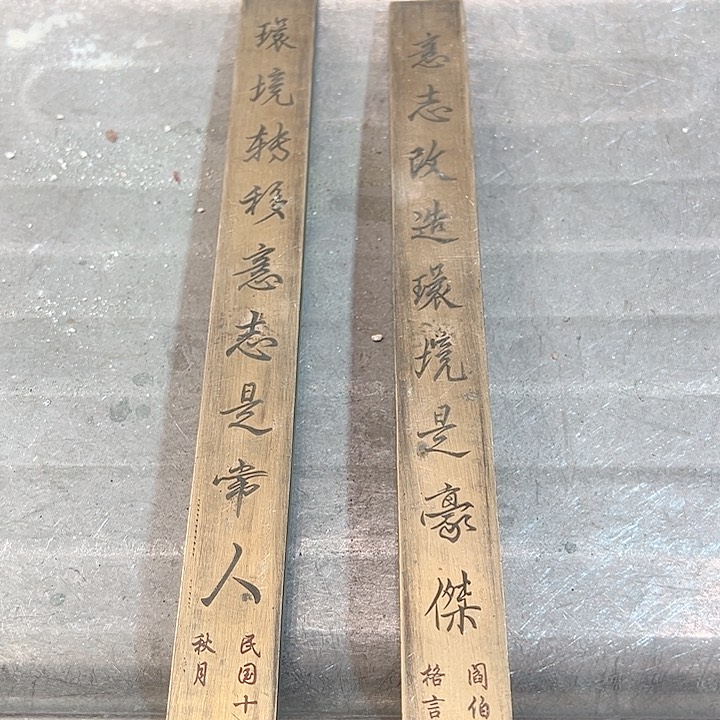 意志改造環境是豪傑
閻伯
格言
環境转移意志是常人
民国十
秋月